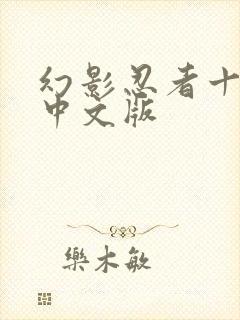 幻影忍者十
中文版
樂木敏